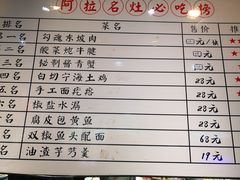 阿拉名灶必吃榜
排名 菜名 售价 推
一名 勾魂东坡肉 元/块
二名 酸菜炖牛腱 元
三名 秘制酱青蟹 元
四名 白切宁海土鸡 28元
五名 手工面疙瘩 28元
六名 椒盐水潺 28元
七名 腐皮包黄鱼 28元
名 双椒鱼头配面 68元
名 油渣芋艿羹 19元